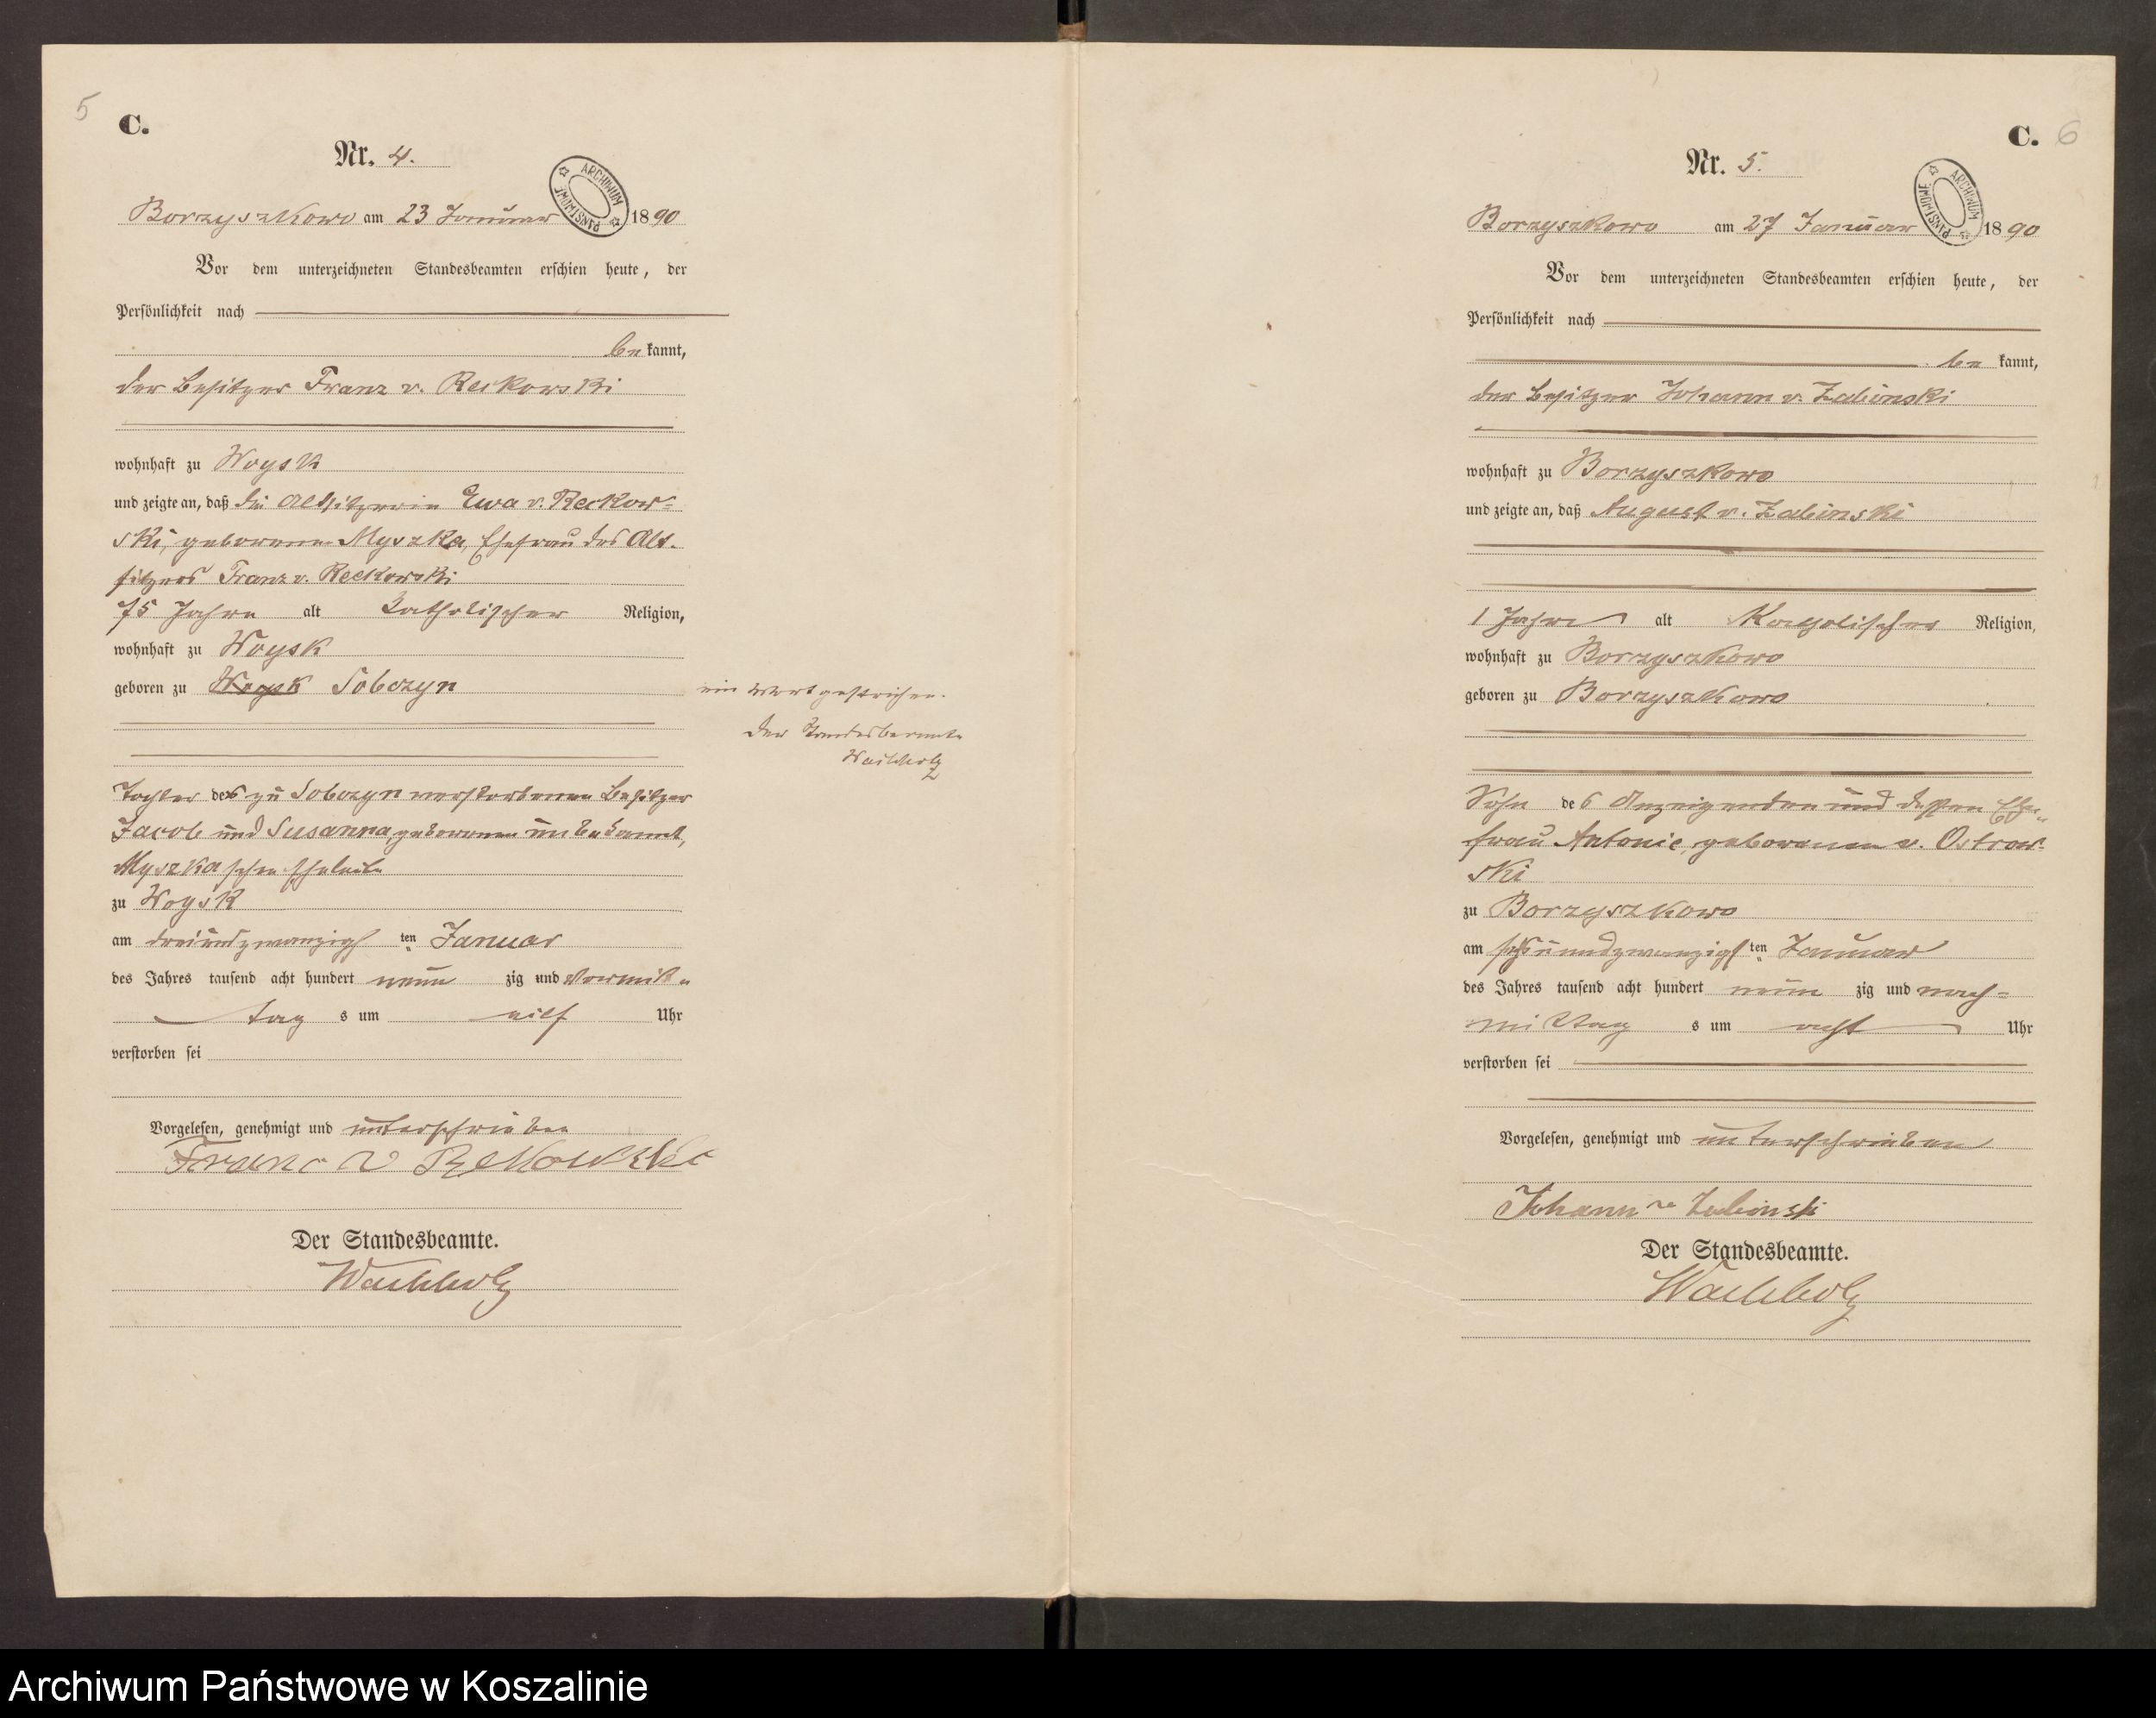 5
C.
Nr. 4.
ARCHIWUM PAŃSTWOWE
Borzyszkowo am 23 Januar 1890
Vor dem unterzeichneten Standesbeamten erschien heute, der
Persönlichkeit nach
be kannt,
der Besitzer Franz v. Reckowski
wohnhaft zu Woysk
und zeigte an, daß die Altsitzerin Ewa v. Reckow-
ski, geborene Myszka, Ehefrau des Alt-
sitzers Franz v. Reckowski
75 Jahre alt katholischer Religion,
wohnhaft zu Woysk
geboren zu Woysk Sobczyn
ein Wort gestrichen.
Der Standesbeamte
Wachholz
Tochter des zu Sobczyn verstorbenen Besitzer
Jacob und Susanna, geborenen unbekannt,
Myszka schen Eheleute
zu Woysk
am dreiundzwanzigsten Januar
des Jahres tausend acht hundert neun zig und Vormit-
tag s um elf Uhr
verstorben sei
Vorgelesen, genehmigt und unterschrieben
Franc v Rekowski
Der Standesbeamte.
Wachholz
C. 6
Nr. 5.
ARCHIWUM PAŃSTWOWE
Borzyszkowo am 27 Januar 1890
Vor dem unterzeichneten Standesbeamten erschien heute, der
Persönlichkeit nach
be kannt,
der Besitzer Johann v. Zabinski
wohnhaft zu Borzyszkowo
und zeigte an, daß August v. Zabinski
1 Jahre alt Katholischer Religion,
wohnhaft zu Borzyszkowo
geboren zu Borzyszkowo
Sohn des Anzeigenden und dessen Ehe-
frau Antonie, geborenen v. Ostrow-
ski
zu Borzyszkowo
am sechsundzwanzigsten Januar
des Jahres tausend acht hundert neun zig und nach-
mittag s um acht Uhr
verstorben sei
Vorgelesen, genehmigt und unterschrieben
Johann v Zabinski
Der Standesbeamte.
Wachholz
Archiwum Państwowe w Koszalinie